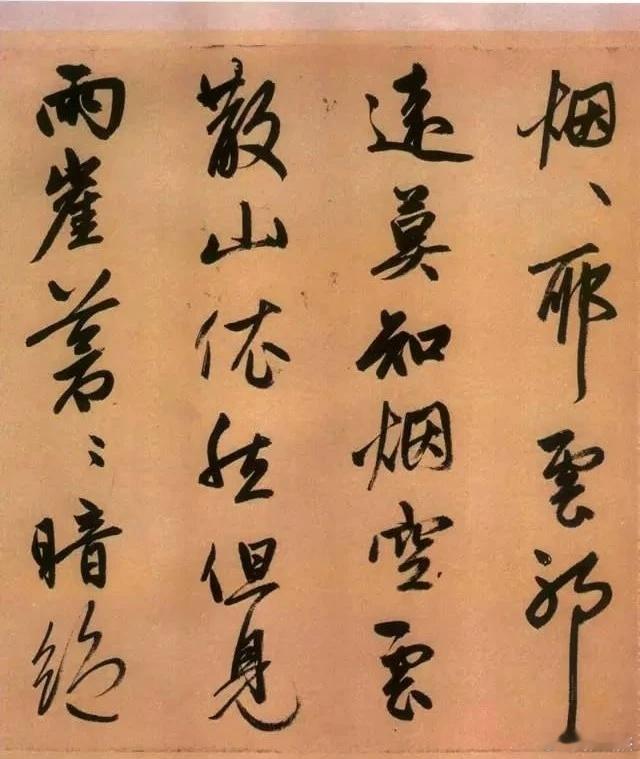 烟、耶雲耶
遠莫知烟空雲
散山依然但見
兩崖蒼〻暗絶